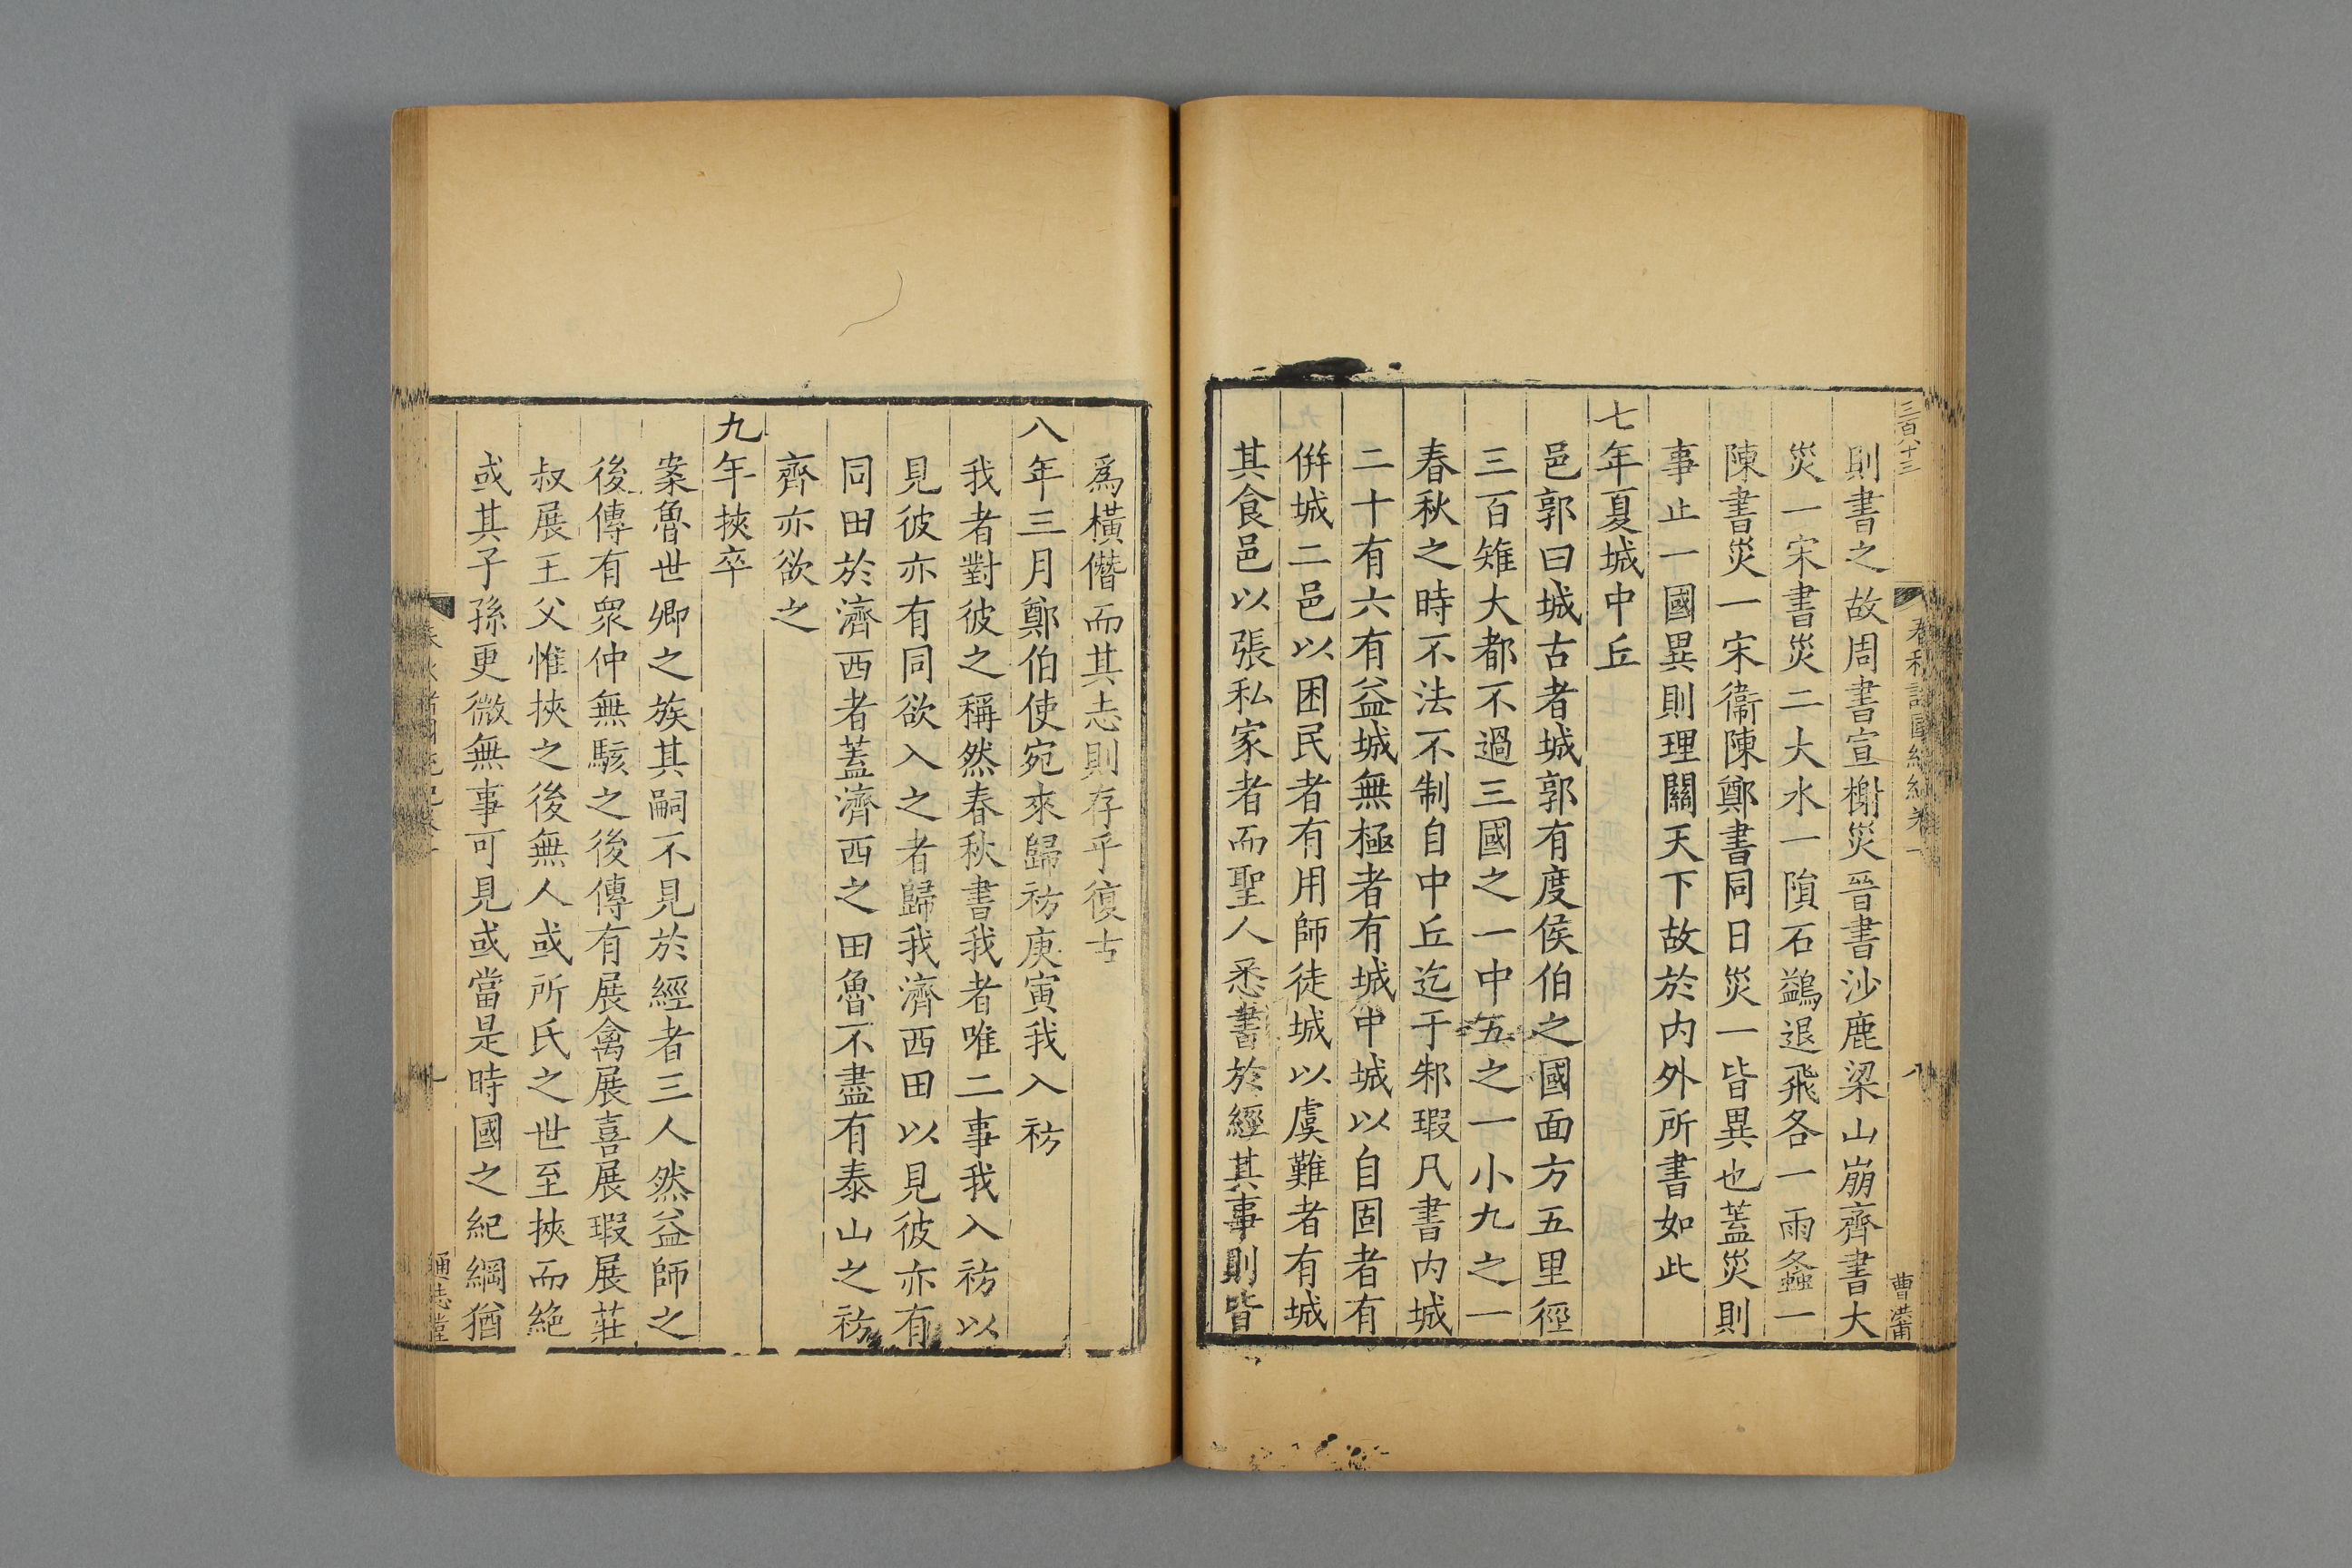 三百八十三
則書之故周書宣榭災晉書沙鹿梁山崩齊書大
災一宋書災二大水一隕石鷁退飛各一雨螽一
陳書災一宋衞陳鄭書同日災一皆異也蓋災則
事止一國異則理關天下故於内外所書如此
七年夏城中丘
邑郭曰城古者城郭有度侯伯之國面方五里徑
三百雉大都不過三國之一中五之一小九之一
春秋之時不法不制自中丘迄于邾瑕凡書内城
二十有六有益城無極者有城中城以自固者有
併城二邑以困民者有用師徒城以虞難者有城
其食邑以張私家者而聖人悉書於經其事則皆
爲橫僭而其志則存乎復古
八年三月鄭伯使宛來歸祊庚寅我入祊
我者對彼之稱然春秋書我者唯二事我入祊以
見彼亦有同欲入之者歸我濟西田以見彼亦有
同田於濟西者蓋濟西之田魯不盡有泰山之祊
齊亦欲之
九年挾卒
案魯世卿之族其嗣不見於經者三人然益師之
後傳有衆仲無駭之後傳有展禽展喜展瑕展莊
叔展王父惟挾之後無人或所氏之世至挾而絶
或其子孫更微無事可見或當是時國之紀綱猶
通志堂